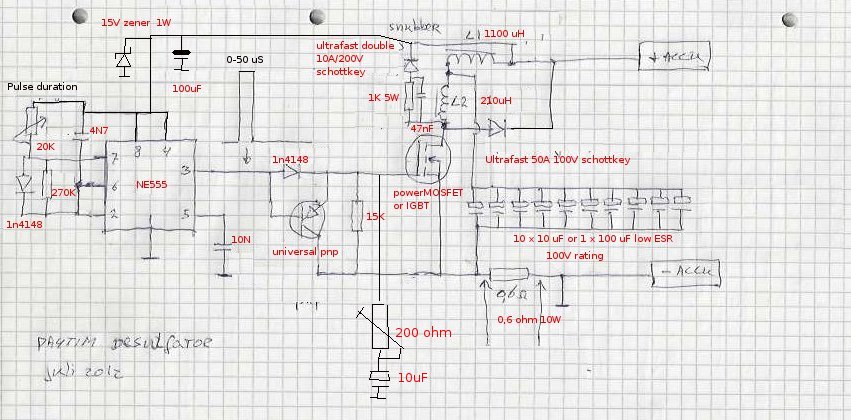 15V zener 1W
snubber
L1 1100 uH
ultrafast double
10A/200V
schottkey
+ACCU
0-50 uS
Pulse duration
100uF
1K 5W
L2
210uH
4N7
47nF
20K
8
4
7
3
1n4148
Ultrafast 50A 100V schottkey
6
NE555
270K
powerMOSFET
or IGBT
2
5
15K
1n4148
10N
universal pnp
10 x 10 uF or 1 x 100 uF low ESR
100V rating
-ACCU
0,6Ω
0,6 ohm 10W
200 ohm
DAYTIM Desulfator
juli 2012
10uF